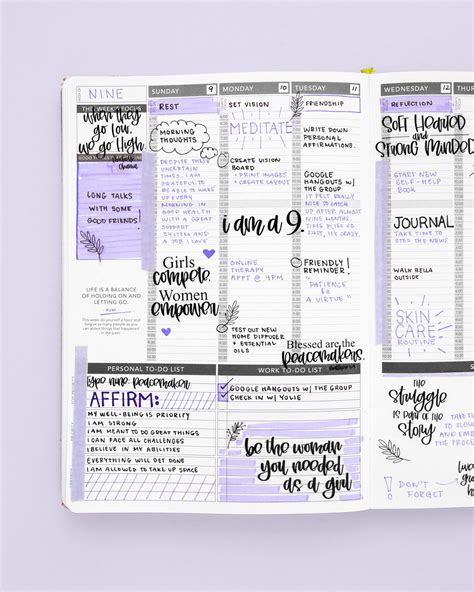 NINE
THIS WEEK'S FOCUS
when they
go low,
we go High.
LONG TALKS
WITH SOME
GOOD FRIENDS!
LIFE IS A BALANCE
OF HOLDING ON AND
LETTING GO.
RUMI
SUNDAY 9
REST
MORNING
THOUGHTS
DESPITE THESE
UNCERTAIN
TIMES, I AM
GRATEFUL TO
BE ABLE TO WAKE
UP EVERY
MORNING IN
GOOD HEALTH
WITH A GREAT
SUPPORT
SYSTEM AND
A JOB I LOVE
Girls
compete.
Women
empower.
MONDAY 10
SET VISION
MEDITATE
CREATE VISION
BOARD
- PRINT IMAGES
- CREATE LAYOUT
i am a 9.
ONLINE
THERAPY
APPT @ 4PM
TEST OUT NEW
HOME DIFFUSER
+ ESSENTIAL
OILS
TUESDAY 11
FRIENDSHIP
WRITE DOWN
PERSONAL
AFFIRMATIONS.
GOOGLE
HANGOUTS W/
THE GROUP
IT FELT REALLY
NICE TO CATCH
UP AFTER ALMOST
NINE MONTHS.
TIME FLIES SO
CRAZY.
FRIENDLY
REMINDER!
"PATIENCE
IS A
VIRTUE"
Blessed are the
peacemakers.
WEDNESDAY 12
REFLECTION
Soft Hearted
and
Strong Minded
START NEW
SELF-HELP
BOOK
JOURNAL
TAKE TIME TO
STOP THE NEWS
WALK BELLA
OUTSIDE
SKIN
CARE
ROUTINE
THU
PERSONAL TO-DO LIST
type nine: peacemaker
AFFIRM:
MY WELL-BEING IS PRIORITY
I AM STRONG
I AM MEANT TO DO GREAT THINGS
I CAN FACE ALL CHALLENGES
I BELIEVE IN MY ABILITIES
EVERYTHING WILL GET DONE
I AM ALLOWED TO TAKE UP SPACE
WORK TO-DO LIST
GOOGLE HANGOUTS W/ THE GROUP
CHECK IN W/ YOLIE
be the woman
you needed
as a girl
THE
Struggle
is part of the
Story
DON'T
FORGET